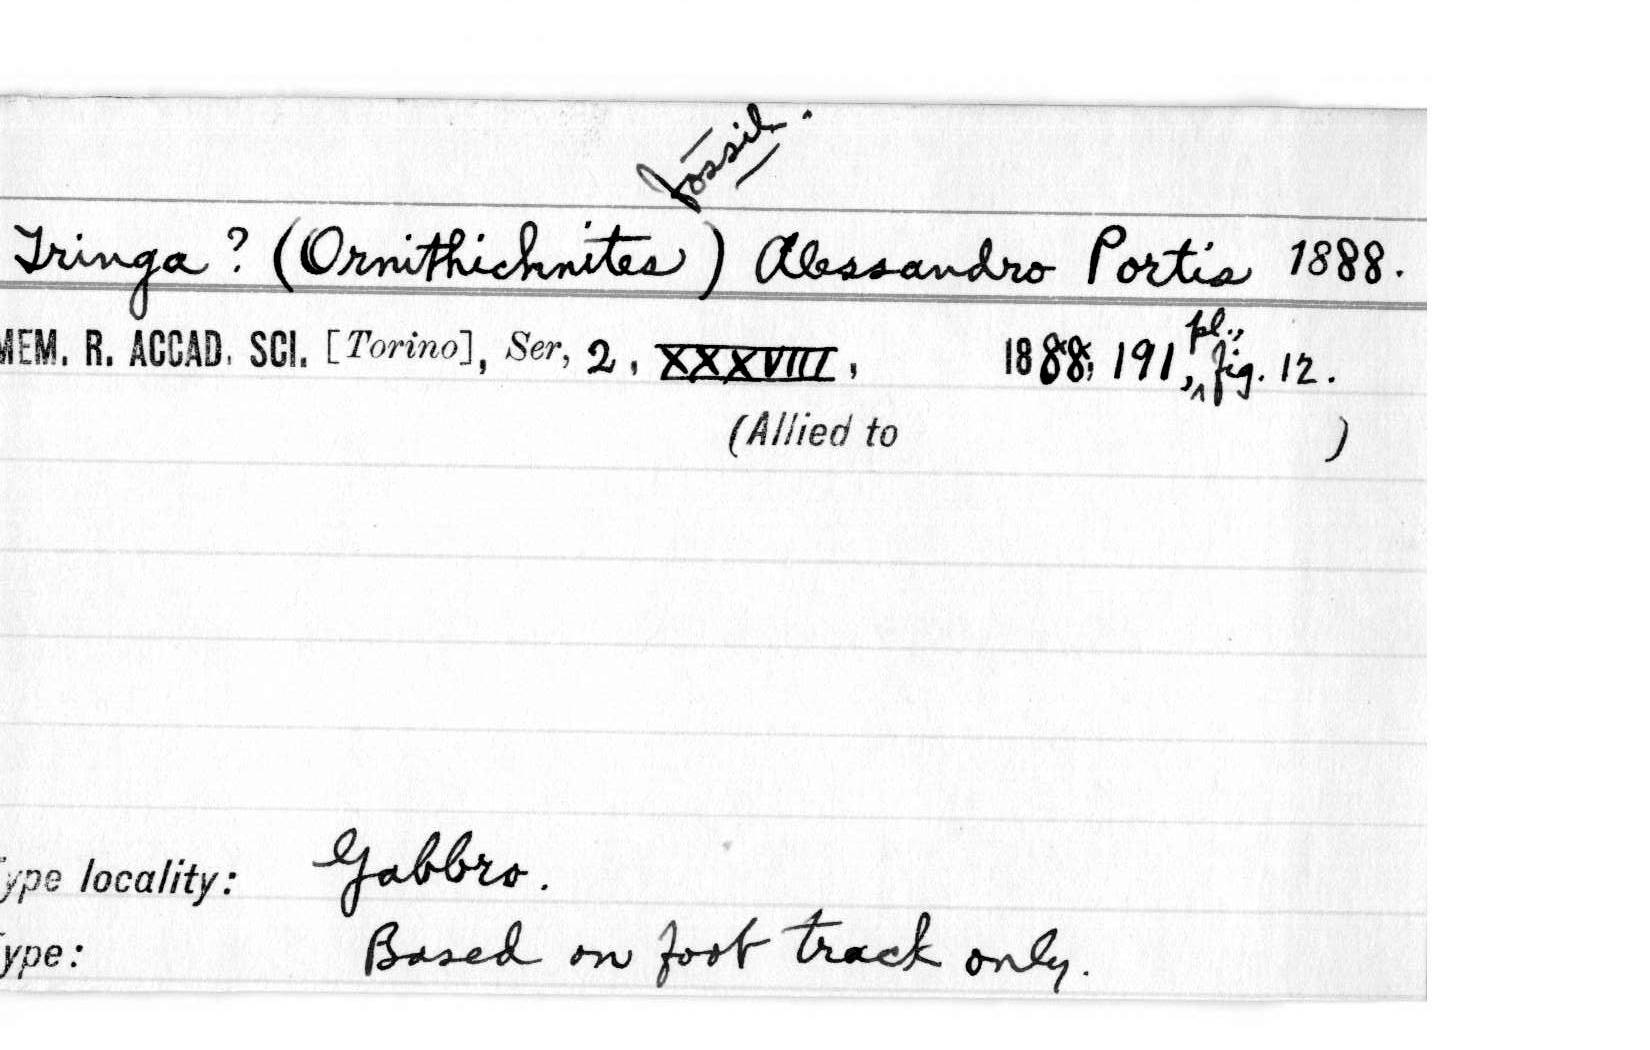 fossil.
Tringa? (Ornithichnites) Alessandro Portis 1888.
MEM. R. ACCAD. SCI. [Torino], Ser, 2, XXXVIII, 1888, 191, pl., fig. 12.
(Allied to )
Type locality: Gabbro.
Type: Based on foot track only.